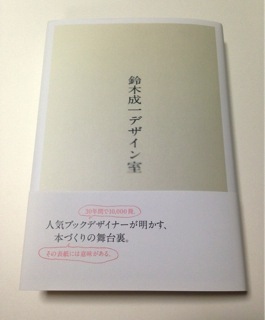 鈴木成一デザイン室
30年間で10,000冊。
人気ブックデザイナーが明かす、
本づくりの舞台裏。
その表紙には意味がある。